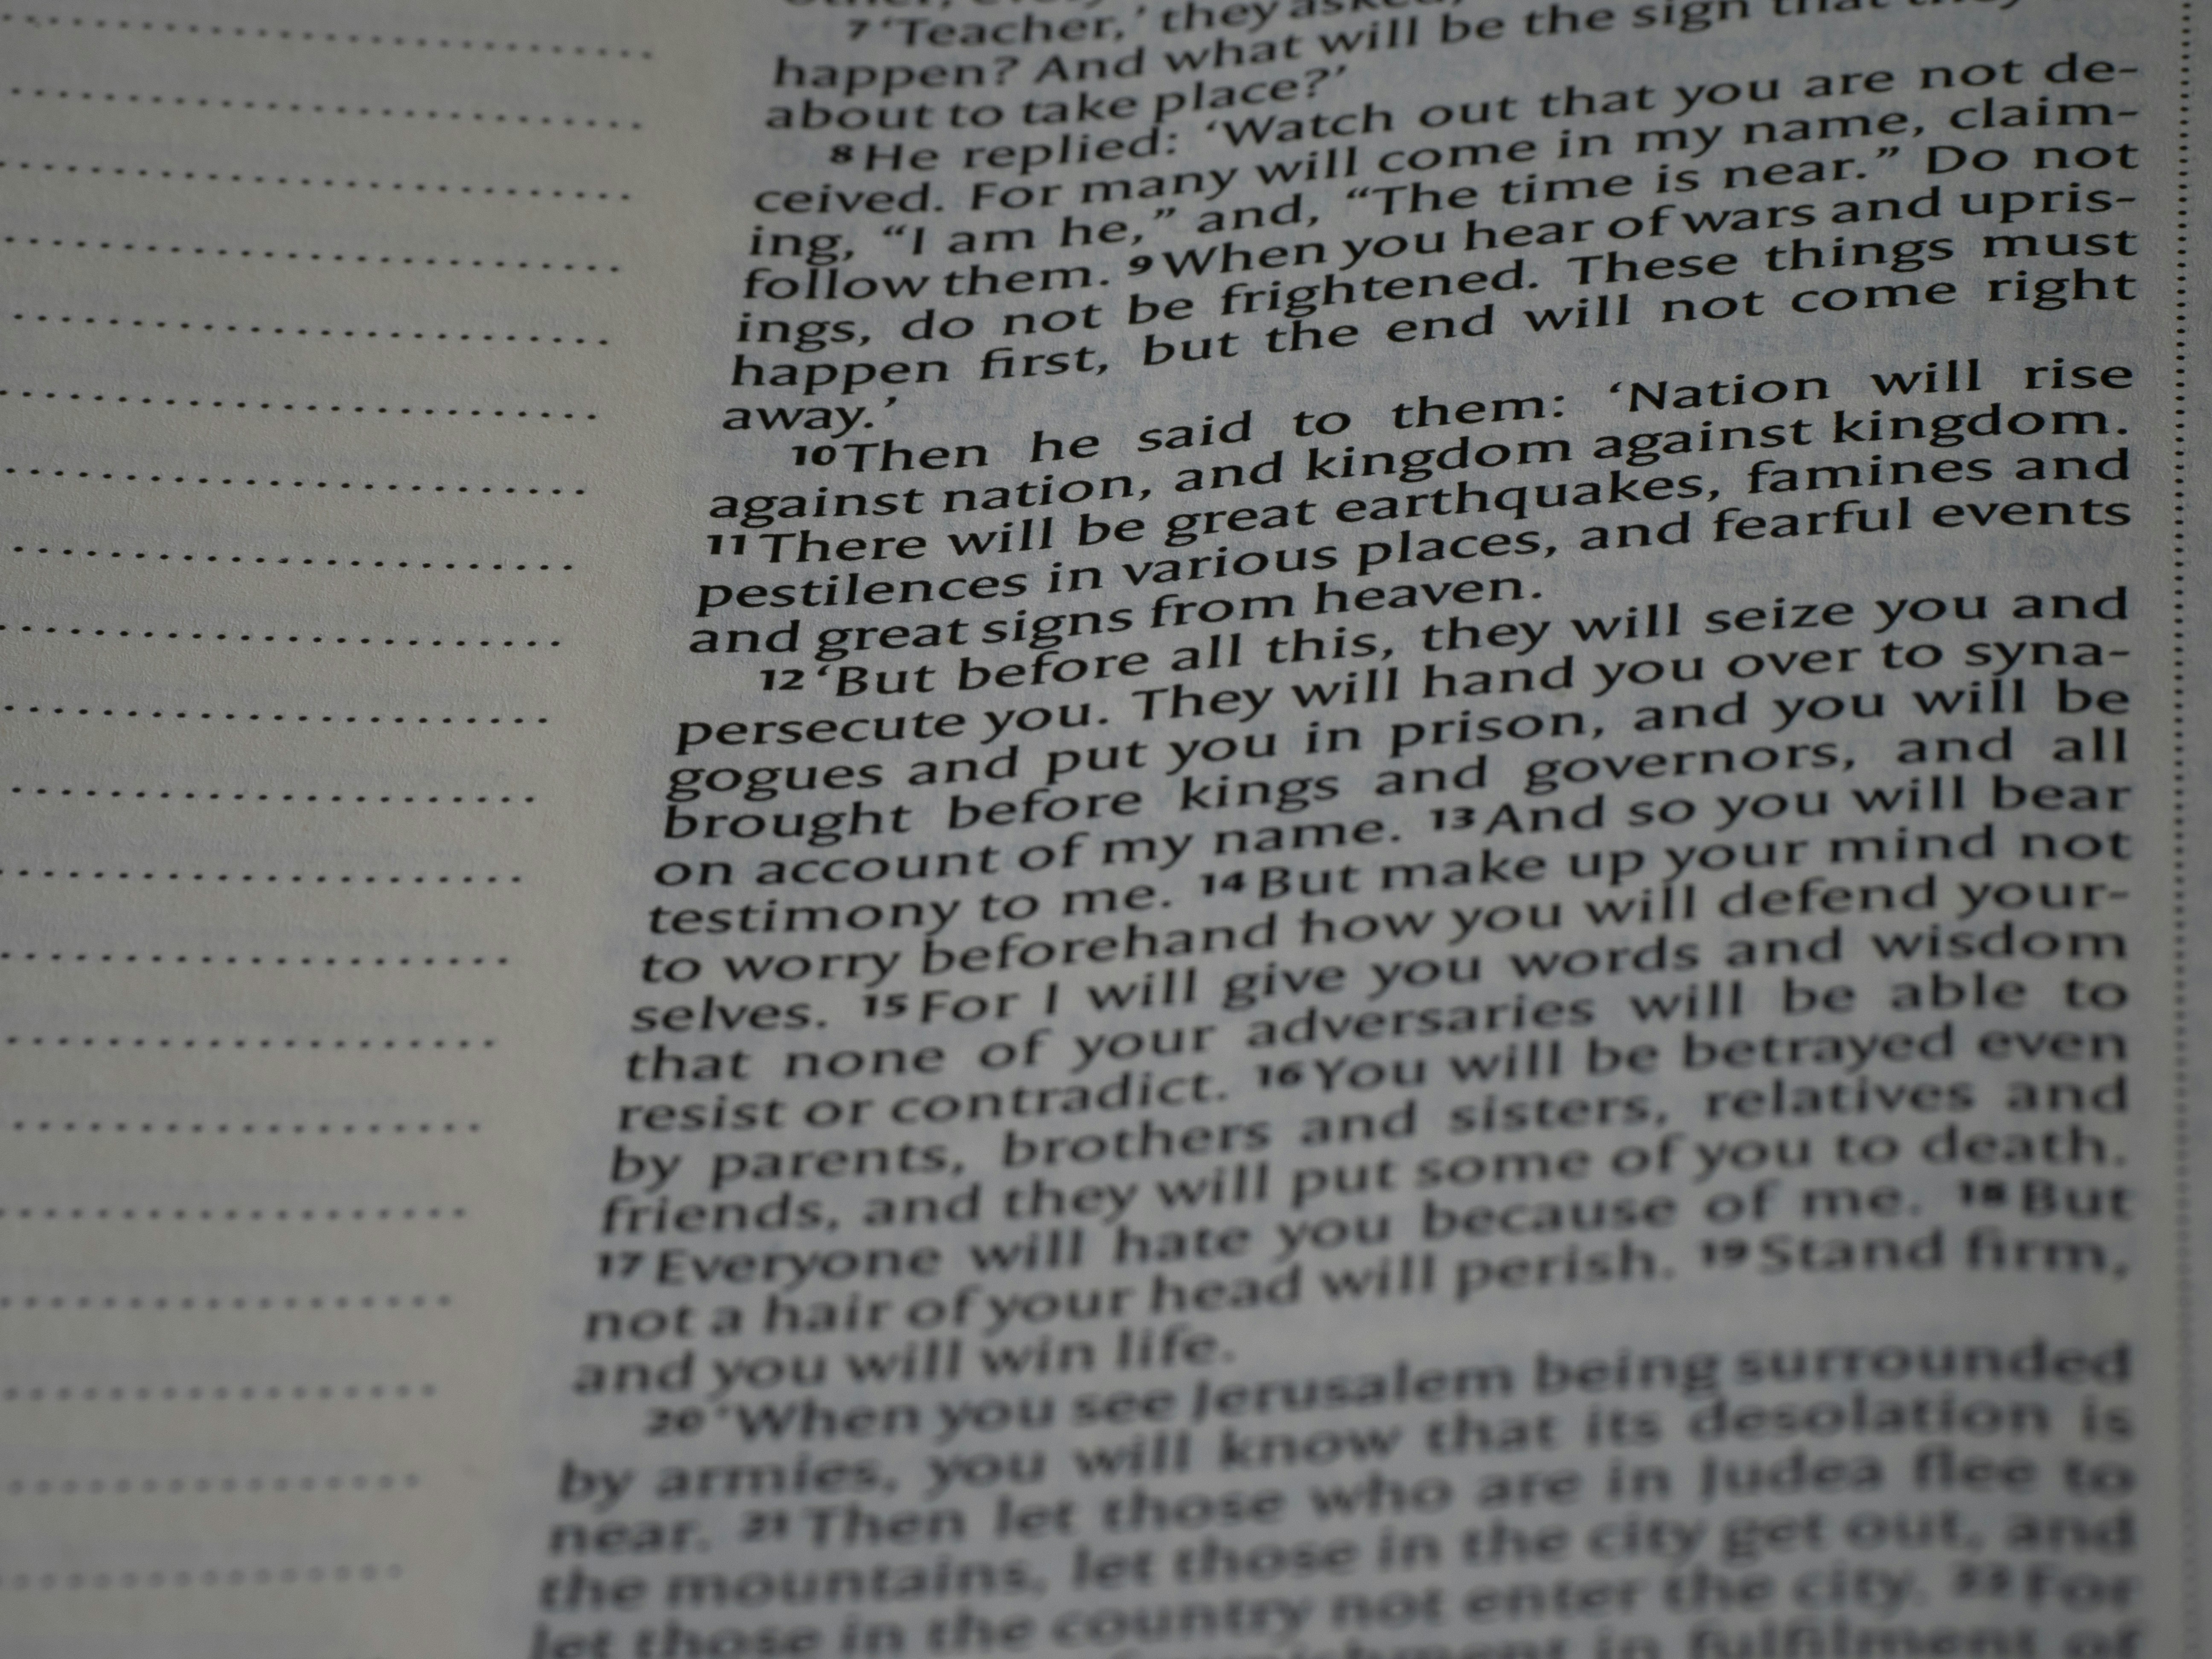 7 ‘Teacher,’ they asked,
happen? And what will be the sign that they
about to take place?’
8 He replied: ‘Watch out that you are not de-
ceived. For many will come in my name, claim-
ing, “I am he,” and, “The time is near.” Do not
follow them. 9 When you hear of wars and upris-
ings, do not be frightened. These things must
happen first, but the end will not come right
away.’
10 Then he said to them: ‘Nation will rise
against nation, and kingdom against kingdom.
11 There will be great earthquakes, famines and
pestilences in various places, and fearful events
and great signs from heaven.
12 ‘But before all this, they will seize you and
persecute you. They will hand you over to syna-
gogues and put you in prison, and you will be
brought before kings and governors, and all
on account of my name. 13 And so you will bear
testimony to me. 14 But make up your mind not
to worry beforehand how you will defend your-
selves. 15 For I will give you words and wisdom
that none of your adversaries will be able to
resist or contradict. 16 You will be betrayed even
by parents, brothers and sisters, relatives and
friends, and they will put some of you to death.
17 Everyone will hate you because of me. 18 But
not a hair of your head will perish. 19 Stand firm,
and you will win life.
20 ‘When you see Jerusalem being surrounded
by armies, you will know that its desolation is
near. 21 Then let those who are in Judea flee to
the mountains, let those in the city get out, and
let those in the country not enter the city. 22 For
in fulfilment of